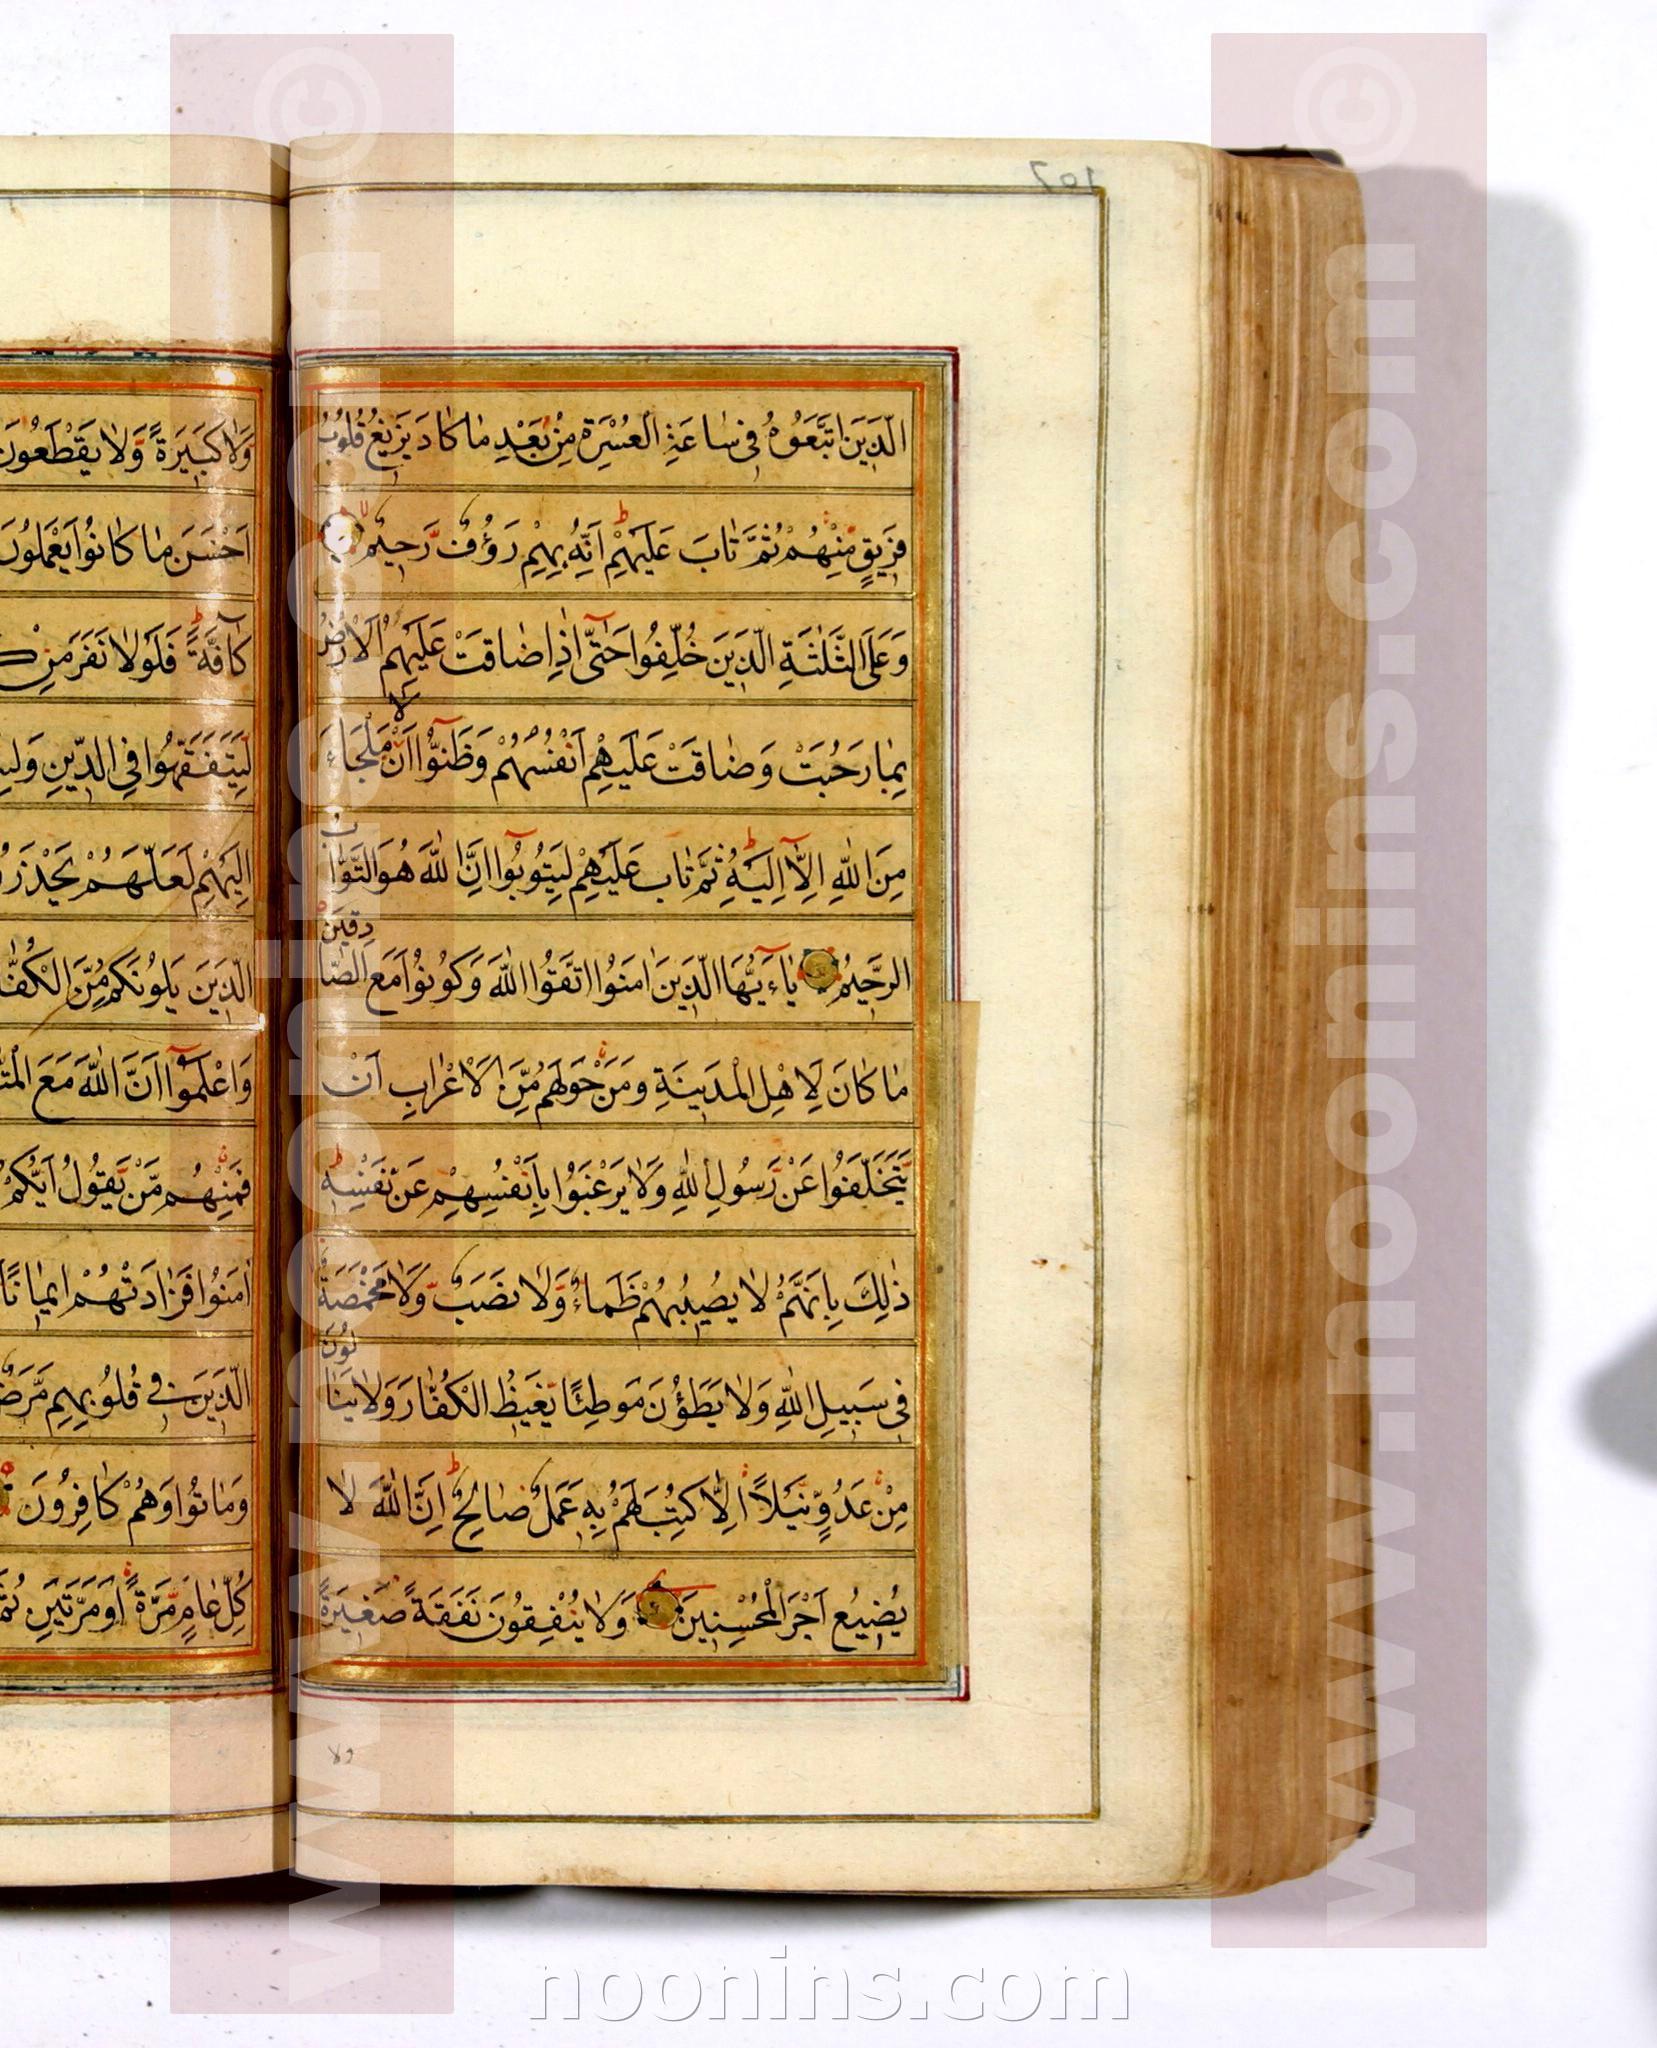 107
الَّذِينَ اتَّبَعُوهُ فِي سَاعَةِ الْعُسْرَةِ مِنْ بَعْدِ مَا كَادَ يَزِيغُ قُلُوبُ
فَرِيقٍ مِنْهُمْ ثُمَّ تَابَ عَلَيْهِمْ إِنَّهُ بِهِمْ رَؤُفٌ رَّحِيمٌ
وَعَلَى الثَّلٰثَةِ الَّذِينَ خُلِّفُوا حَتّٰى إِذَا ضَاقَتْ عَلَيْهِمُ الْاَرْضُ
بِمَا رَحُبَتْ وَضَاقَتْ عَلَيْهِمْ اَنْفُسُهُمْ وَظَنُّوا اَنْ لَا مَلْجَاَءَ
مِنَ اللّٰهِ اِلَّا اِلَيْهِ ثُمَّ تَابَ عَلَيْهِمْ لِيَتُوبُوا اِنَّ اللّٰهَ هُوَ التَّوَّابُ
الرَّحِيمُ يَاءَيُّهَا الَّذِينَ اٰمَنُوا اتَّقُوا اللّٰهَ وَكُونُوا مَعَ الصَّادِقِينَ
مَا كَانَ لِاَهْلِ الْمَدِينَةِ وَمَنْ حَوْلَهُمْ مِّنَ الْاَعْرَابِ اَنْ
يَّتَخَلَّفُوا عَنْ رَّسُولِ اللّٰهِ وَلَا يَرْغَبُوا بِاَنْفُسِهِمْ عَنْ نَفْسِهِ
ذٰلِكَ بِاَنَّهُمْ لَا يُصِيبُهُمْ ظَمَاءٌ وَّلَا نَصَبٌ وَّلَا مَخْمَصَةٌ
فِي سَبِيلِ اللّٰهِ وَلَا يَطَؤُنَ مَوْطِئًا يَّغِيظُ الْكُفَّارَ وَلَا يَنَالُونَ
مِنْ عَدُوٍّ نَّيْلًا اِلَّا كُتِبَ لَهُمْ بِهِ عَمَلٌ صَالِحٌ اِنَّ اللّٰهَ لَا
يُضِيعُ اَجْرَ الْمُحْسِنِينَ وَلَا يُنْفِقُونَ نَفَقَةً صَغِيرَةً
ولا
وَّلَا كَبِيرَةً وَّلَا يَقْطَعُونَ
اَحْسَنَ مَا كَانُوا يَعْمَلُونَ
كَافَّةً فَلَوْلَا نَفَرَ مِنْ
لِّيَتَفَقَّهُوا فِي الدِّينِ
اِلَيْهِمْ لَعَلَّهُمْ
الَّذِينَ يَلُونَكُمْ مِّنَ
وَاعْلَمُوا اَنَّ اللّٰهَ مَعَ
فَمِنْهُمْ مَّنْ يَّقُولُ اَيُّكُمْ
اٰمَنُوا فَزَادَتْهُمْ اِيمَانًا
الَّذِينَ فِي قُلُوبِهِمْ
وَمَاتُوا وَهُمْ كَافِرُونَ
كُلِّ عَامٍ مَّرَّةً اَوْ مَرَّتَيْنِ
www.noonins.com ©
www.noonins.com ©
noonins.com